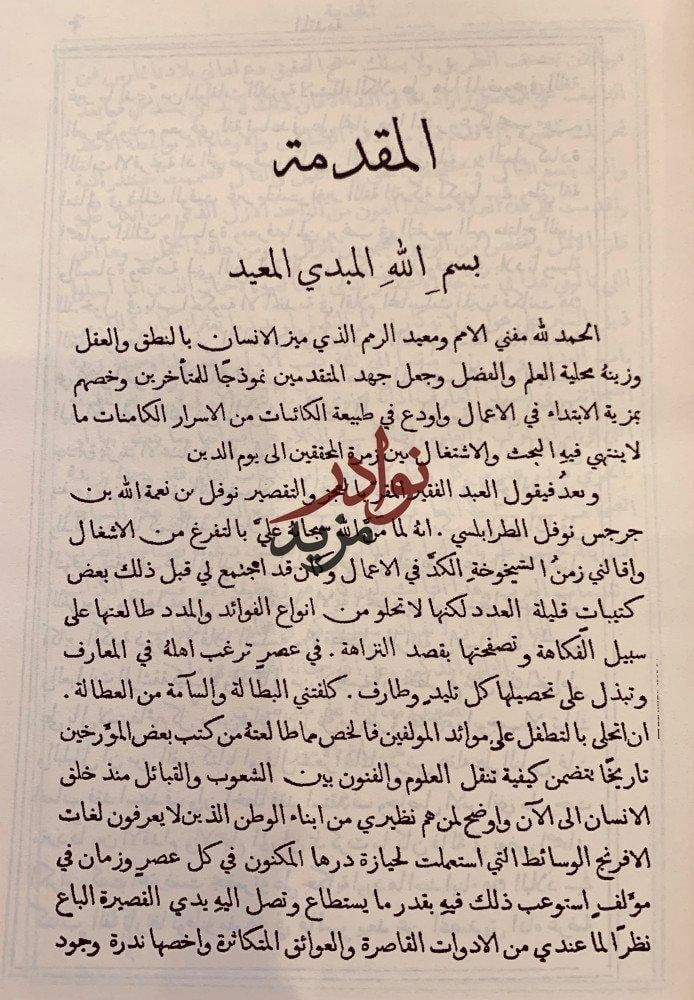 المقدمة
بسمِ اللهِ المبدي المعيد
الحمد لله مفني الامم ومعيد الرمم الذي ميز الانسان بالنطق والعقل
وزينهُ بحلية العلم والفضل وجعل جهد المتقدمين نموذجًا للمتأخرين وخصهم
بمزية الابتداء في الاعمال واودع في طبيعة الكائنات من الاسرار الكامنات ما
لا ينتهي فيهِ البحث والاشتغال بين زمرة المحققين الى يوم الدين
وبعدُ فيقول العبد الفقير المقر بالعجز والتقصير نوفل بن نعمة الله بن
جرجس نوفل الطرابلسي . انهُ لما منَّ الله سبحانهُ عليَّ بالتفرغ من الاشغال
واقالني زمنُ الشيخوخةِ الكدَّ في الاعمال وكان قد اجتمع لي قبل ذلك بعض
كتيبات قليلة العدد لكنها لا تخلو من انواع الفوائد والمدد طالعتها على
سبيل الفكاهة وتصفحتها بقصد النزاهة . في عصرٍ ترغب اهلهُ في المعارف
وتبذل على تحصيلها كل تليدٍ وطارف . كلفتني البطالة والسآمة من العطالة .
ان اتحلى بالتطفل على موائد المولفين فالخص مما طالعتهُ من كتب بعض المؤرخين
تاريخًا يتضمن كيفية تنقل العلوم والفنون بين الشعوب والقبائل منذ خلق
الانسان الى الآن واوضح لمن هم نظيري من ابناء الوطن الذين لا يعرفون لغات
الافرنج الوسائط التي استعملت لحيازة درها المكنون في كل عصرٍ وزمان في
مؤلفٍ استوعب ذلك فيهِ بقدر ما يستطاع وتصل اليهِ يدي القصيرة الباع
نظرًا لما عندي من الادوات القاصرة والعوائق المتكاثرة واخصها ندرة وجود
نوادر
مزيد